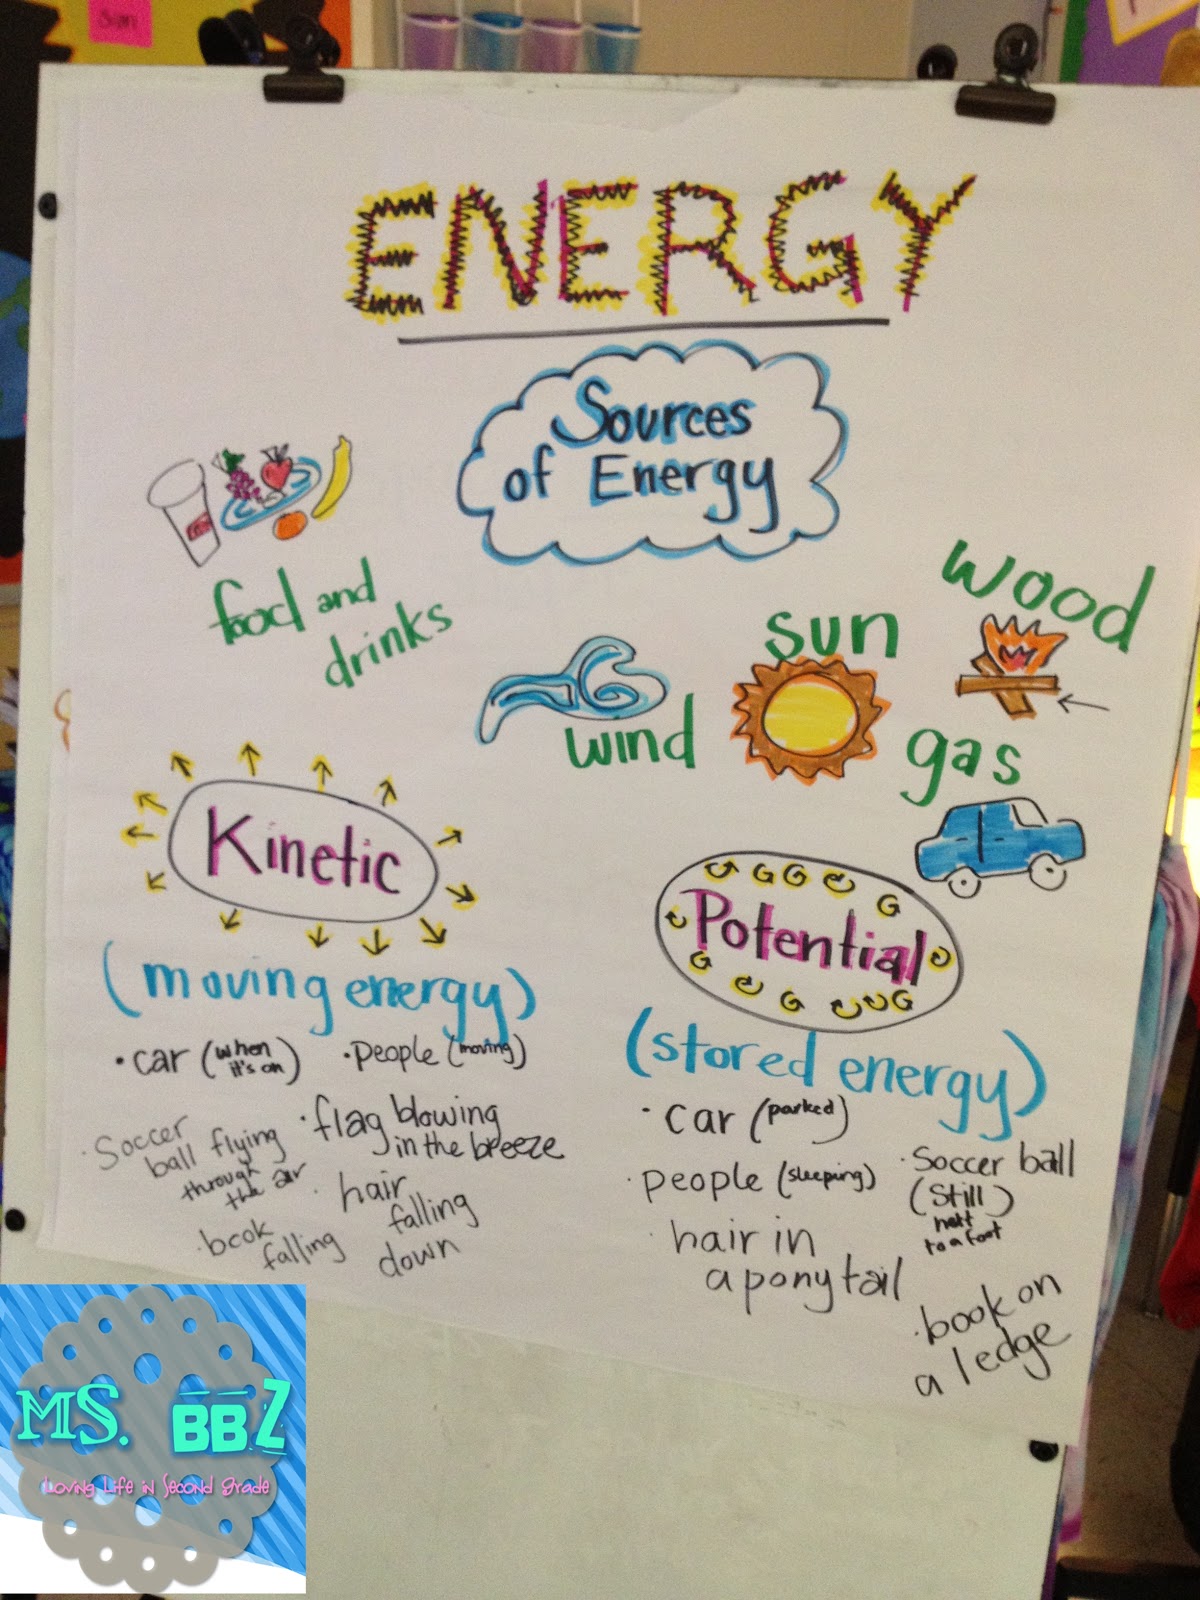 ENERGY
Sources
of Energy
food and
drinks
wind
sun
wood
gas
Kinetic
(moving energy)
• car (when
it's on)
• people (moving)
• Soccer
ball flying
through
the air
• flag blowing
in the breeze
• hair
falling
down
• book
falling
Potential
(stored energy)
• car (parked)
• people (sleeping)
• Soccer ball
(still)
next
to a foot
• hair in
a ponytail
• book on
a ledge
MS. BBZ
Loving Life in Second Grade